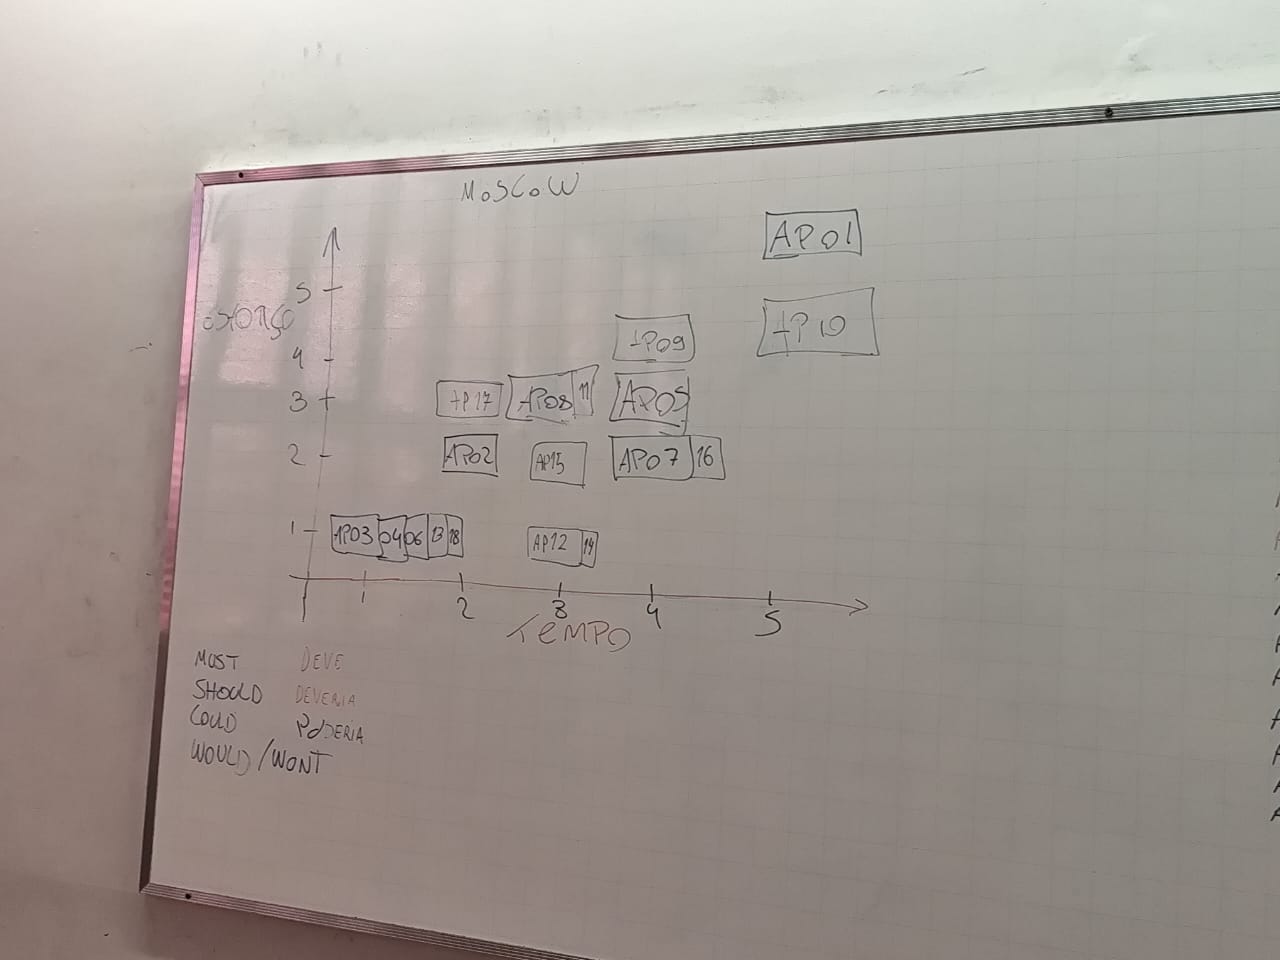 MoSCoW
AP01
5
esforço
AP10
AP09
4
3
AP17 AP08 11 AP05
2
AP02 AP15 AP07 16
1
AP03 04 06 13 18 AP12 14
1 2 3 4 5
TEMPO
MOST DEVE
SHOULD DEVERIA
COULD PODERIA
WOULD/WONT